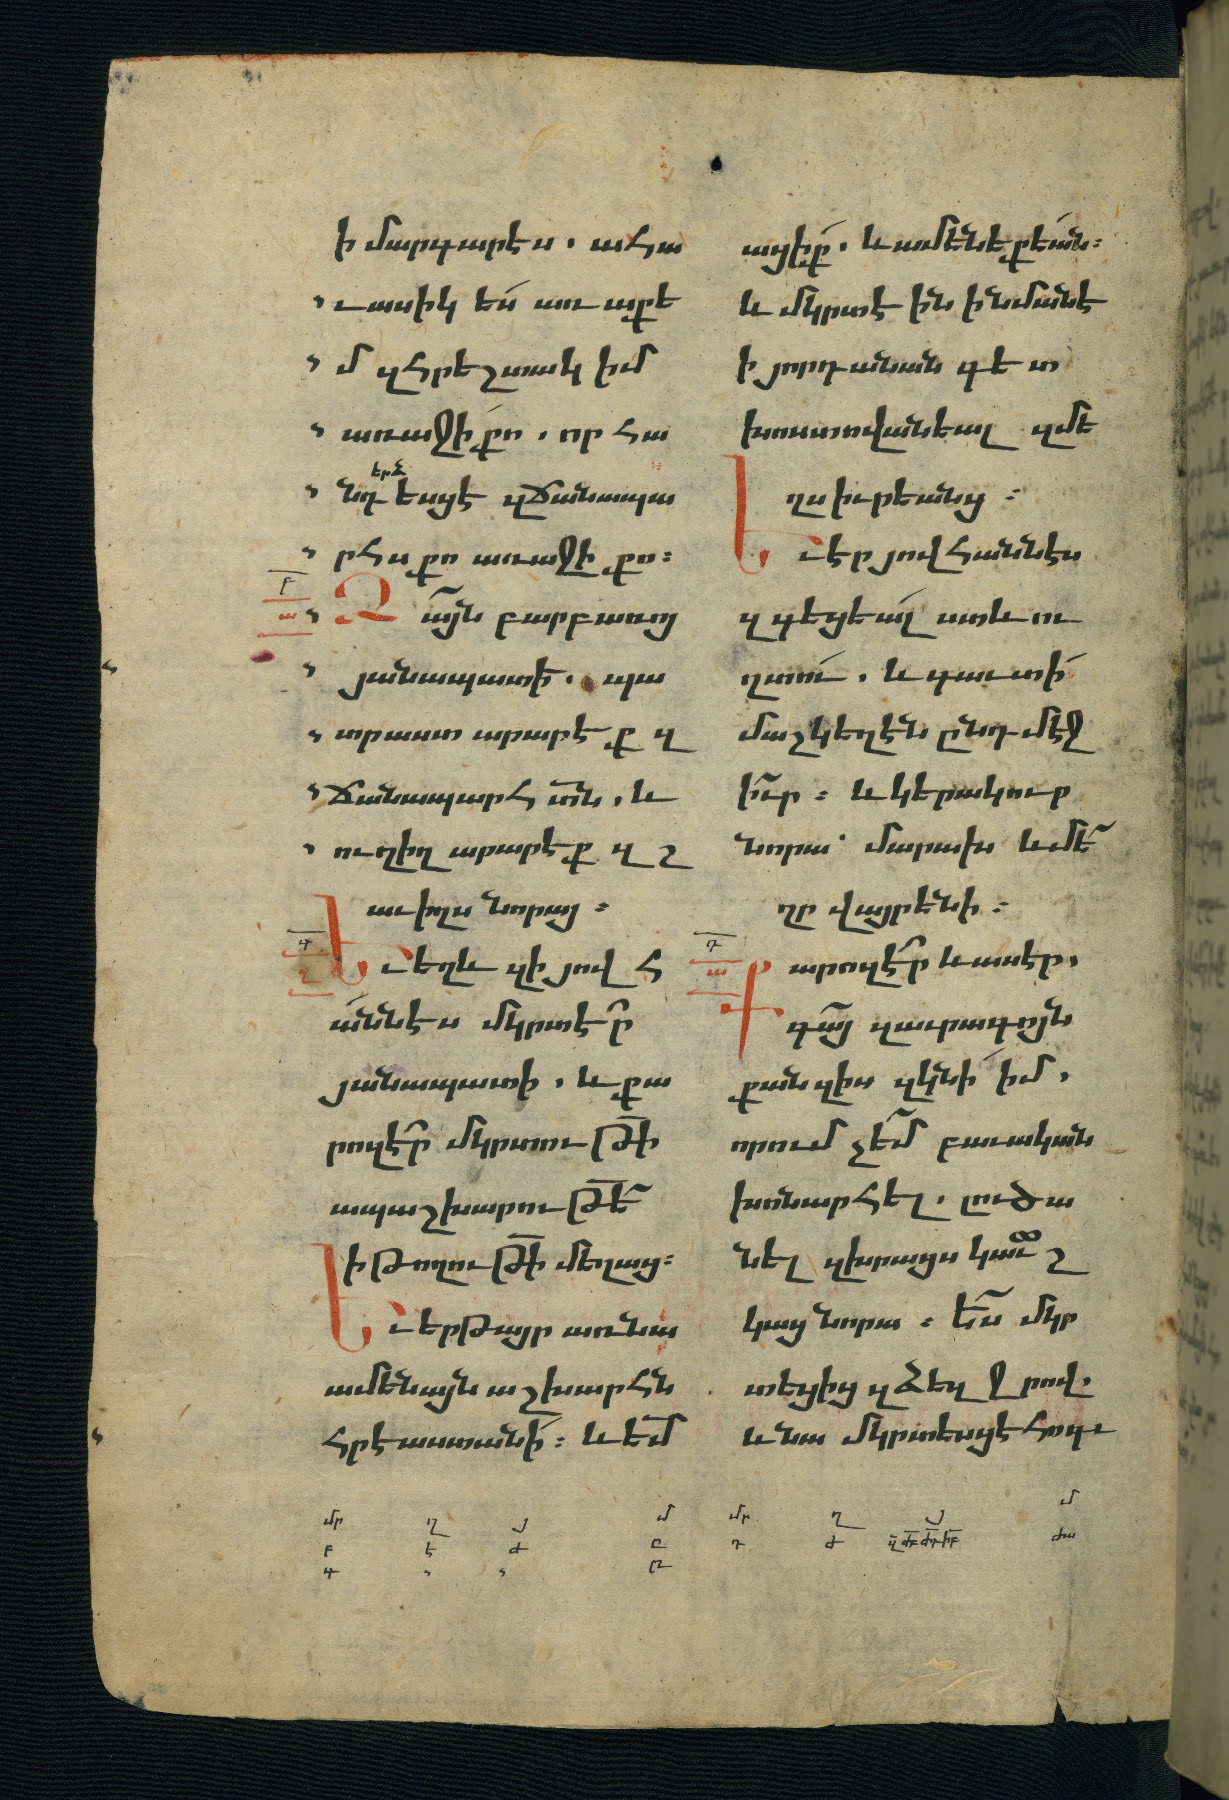 ի մարգարէս. ահա
ւասիկ ես առաքե
մ զհրեշտակ իմ
առաջի քո. որ հա
նդերձեսցէ զճանապա
րհս քո առաջի քո։
Ձայն բարբառոյ
յանապատի. պա
տրաստ արարէք զ
ճանապարհ տն. և
ուղիղ արարէք զշ
աւիղս նորայ։
Եւ եղև զի յովհ
աննէս մկրտէր
յանապատի. և քա
րոզէր մկրտութի
ապաշխարութե
ի թողութի մեղաց։
Եւ երթայր առ նա
ամենայն աշխարհն
հրէաստանի։ և եմ
ացիք. և ամենեքեան։
և մկրտէին ի նմանէ
ի յորդանան գետ
խոստովանեալ զմե
ղս իւրեանց։
Եւ էր յովհաննէս
զգեցեալ ստև ու
ղտու. և գաւտի
մաշկեղէն ընդ մէջ
իւր։ և կերակուր
նորա՝ մարախ և մե
ղր վայրենի։
Քարոզէր և ասէր,
գայ զաւրագոյն
քան զիս զկնի իմ,
որում չեմ բաւական
խոնարհել. լուծա
նել զխրացս կաւշ
կաց նորա։ Ես մկր
տեցից զձեզ ջրով.
և նա մկրտեսցէ հոգւ